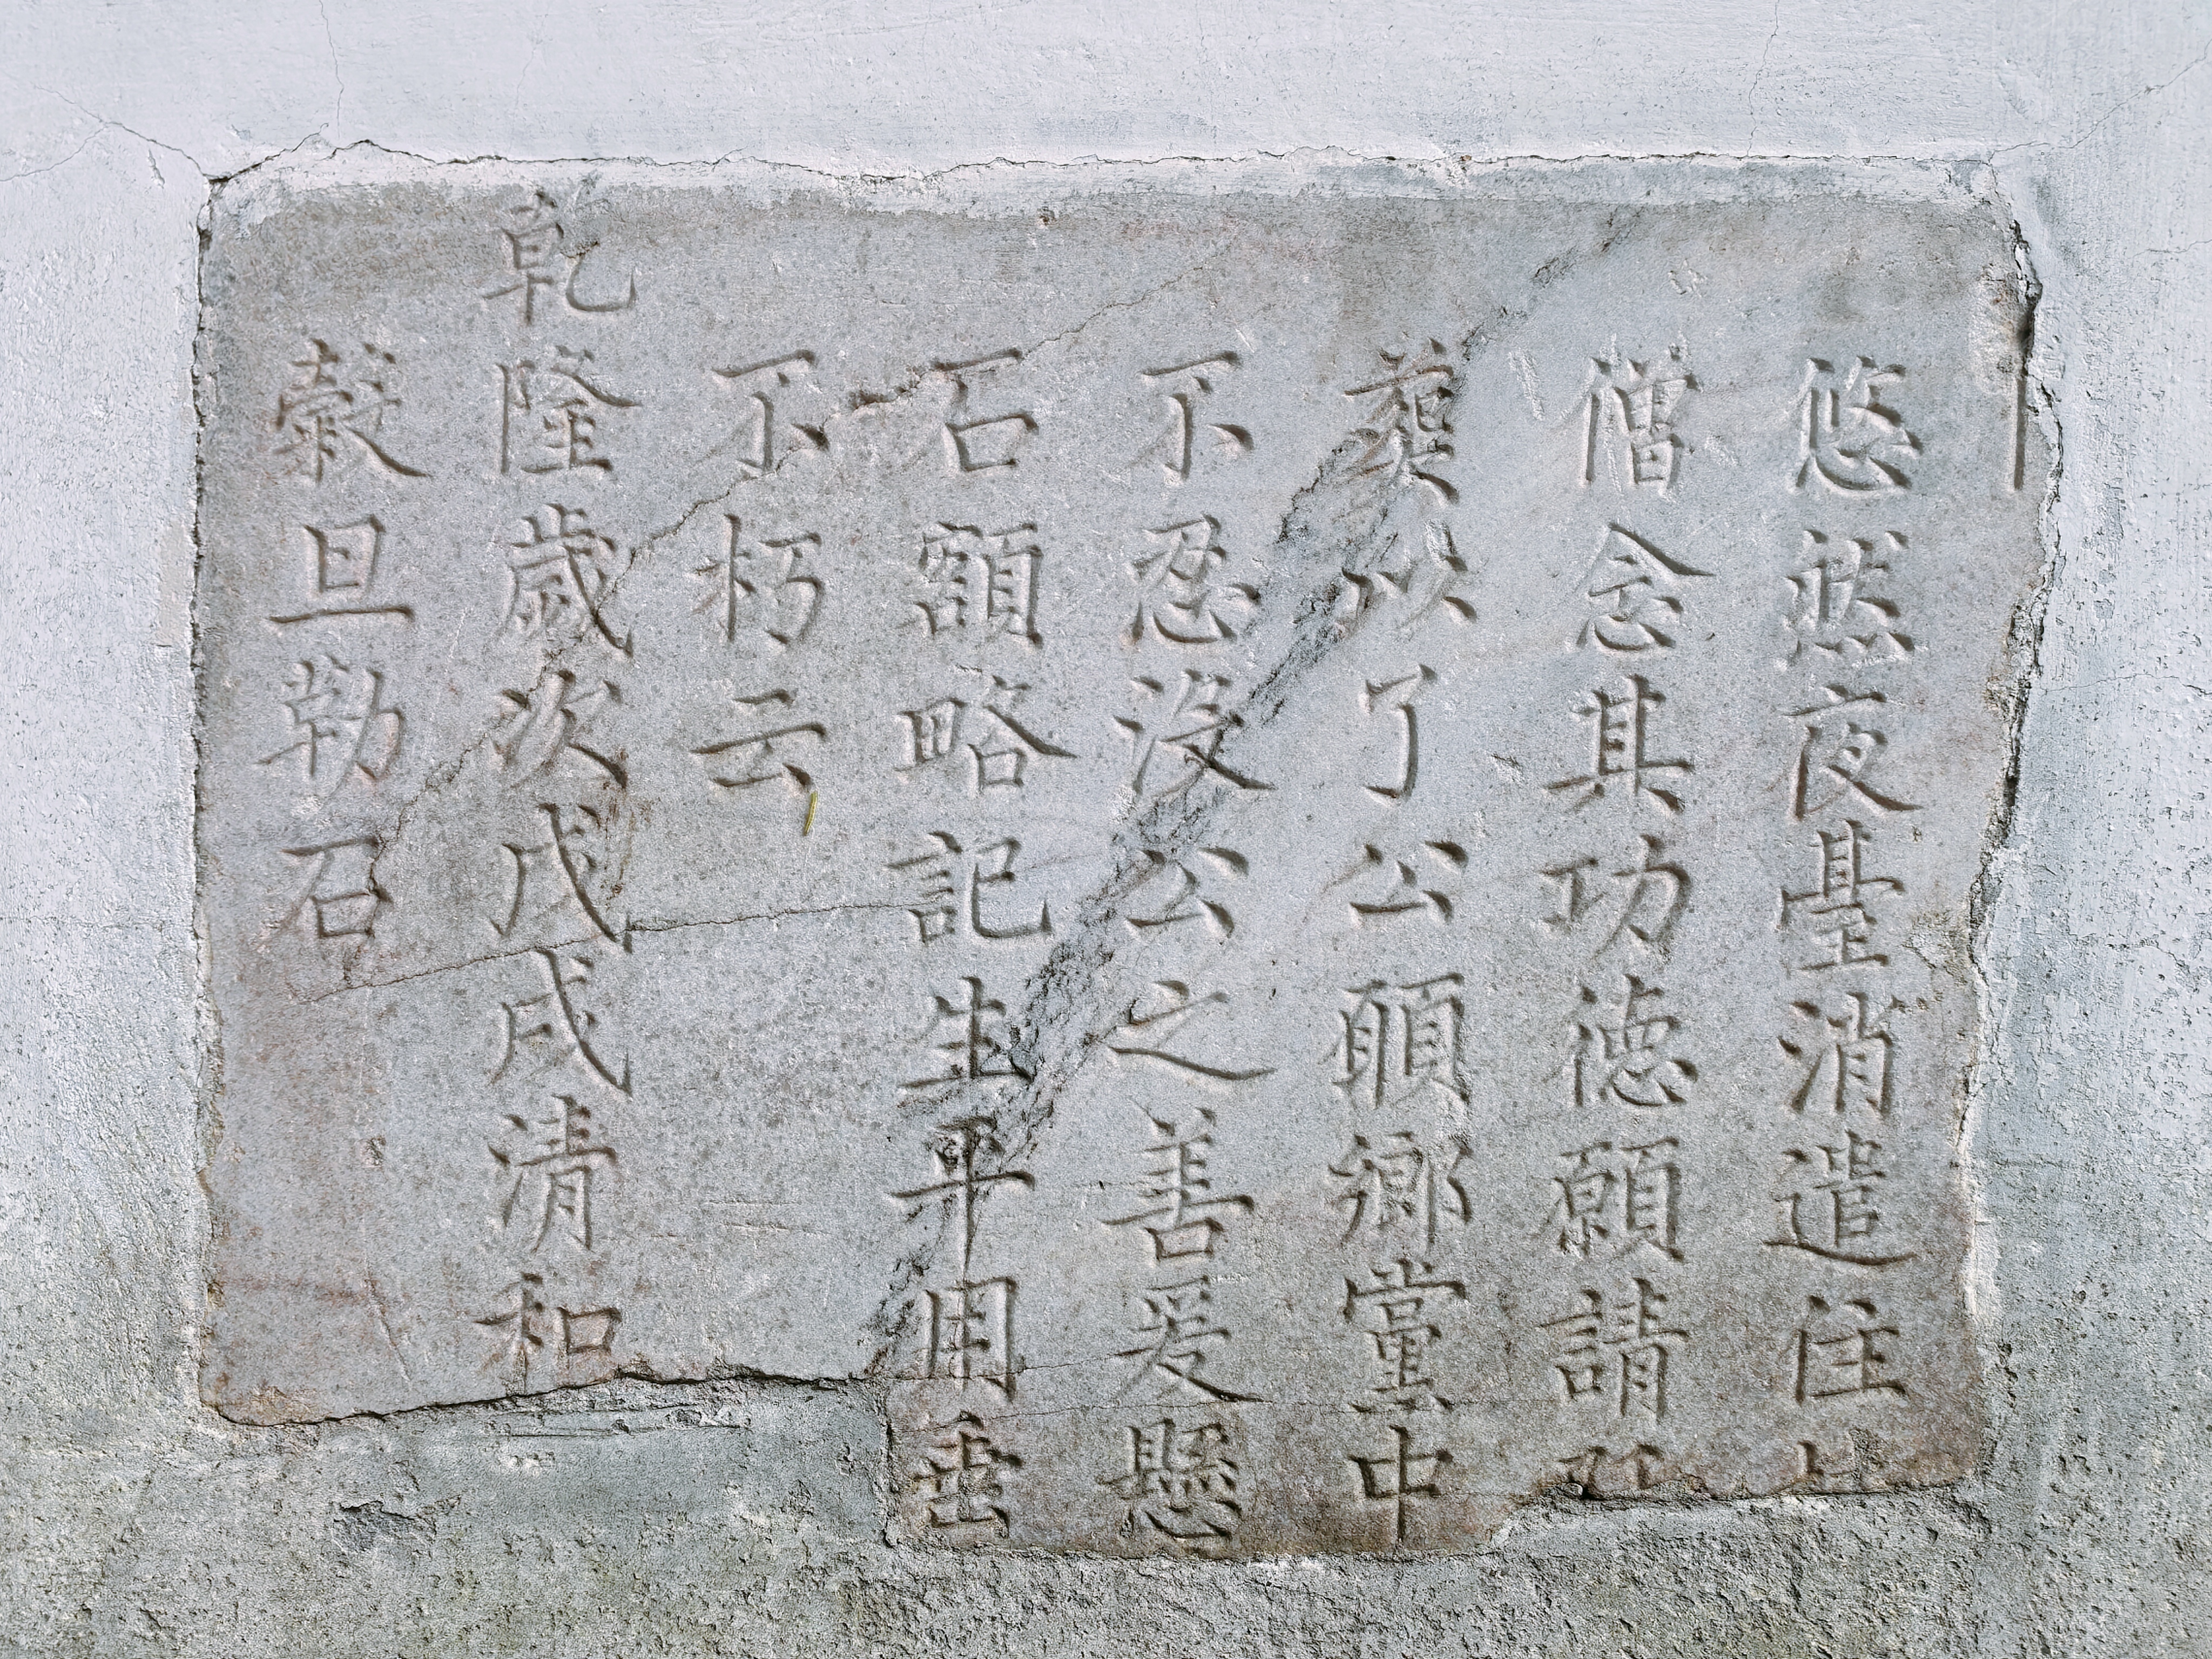 悠然夜臺消遣住
僧念其功德願請
葬以了公願鄉黨中
不忍沒公之善爰懸
石額略記生平用垂
不朽云
乾隆歲次戊戌清和
穀旦勒石